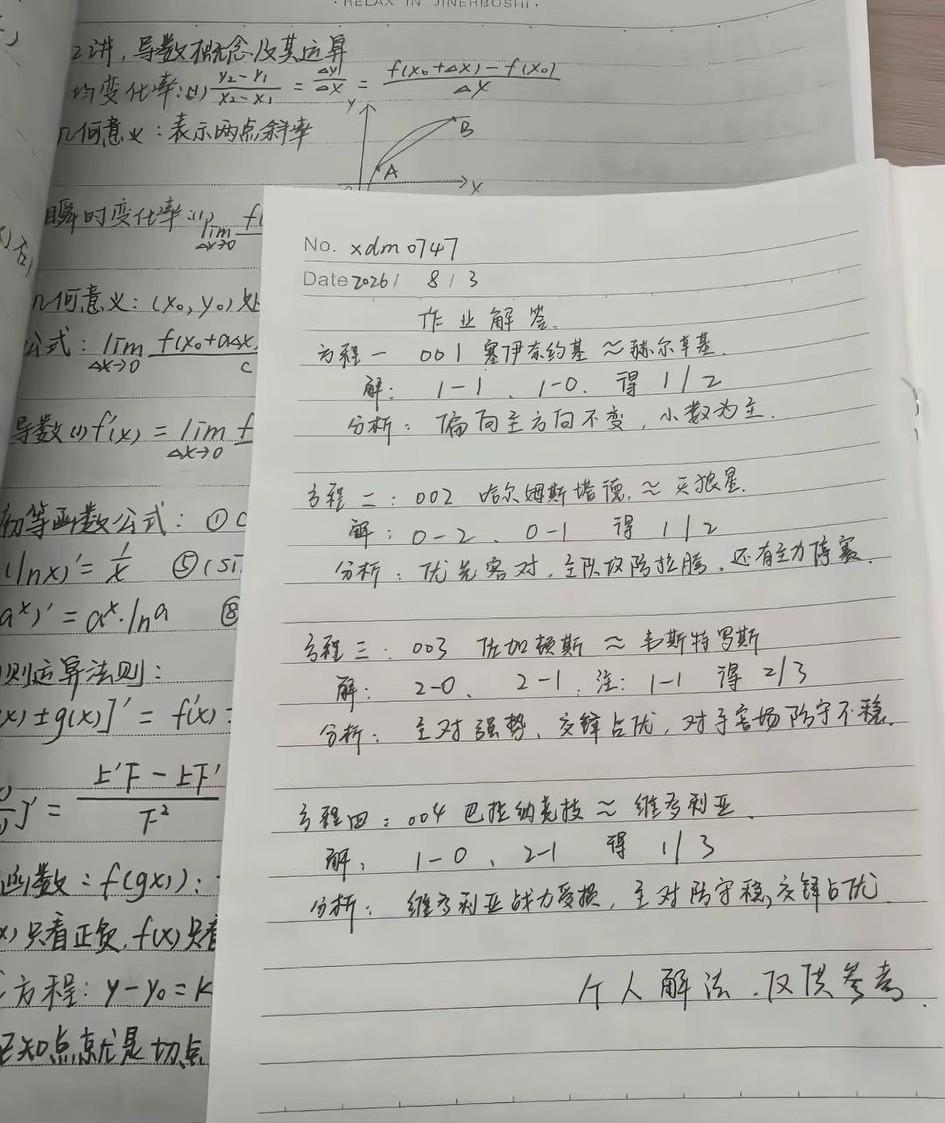 · RELAX IN JINERBOSHI ·
2讲,导数概念及其运算
均变化率:(1) \frac{y₂-y₁}{x₂-x₁} = \frac{Δy}{Δx} = \frac{f(x₀+Δx)-f(x₀)}{Δx}
几何意义:表示两点斜率
y
B
A
x
瞬时变化率:(1) lim Δx→0
几何意义:(x₀,y₀)处
公式: lim Δx→0 f(x₀+aΔx
c
导数(1)f'(x)=lim Δx→0 f
初等函数公式: ① C
(lnx)'=\frac{1}{x} ⑤(si
a^x)'=a^x·lna ⑧
则运算法则:
x)±g(x)]'=f'(x)
]'=\frac{上'下-上下'}{下²}
函数:f(g(x)):
x)只看正负,f(x)只看
方程:y-y₀=k
知点就是切点
No. xdm0747
Date 2026/ 8/3
作业解答.
方程一 001 塞伊奈约基≈赫尔辛基.
解: 1-1、1-0. 得 1/2
分析: 偏向主方向不变,小数为主.
方程二:002 哈尔姆斯塔德.≈天狼星.
解: 0-2、0-1 得 1/2
分析: 优先客对,主队攻防拉胯,还有主力停赛.
方程三.003 佐加顿斯≈韦斯特罗斯
解: 2-0、2-1.注:1-1 得 2/3
分析: 主对强势、交锋占优,对手客场防守不稳.
方程四:004 巴拉纳竞技≈维多利亚.
解: 1-0、2-1 得 1/3
分析: 维多利亚战力受损,主对防守稳,交锋占优.
个人解法.仅供参考.